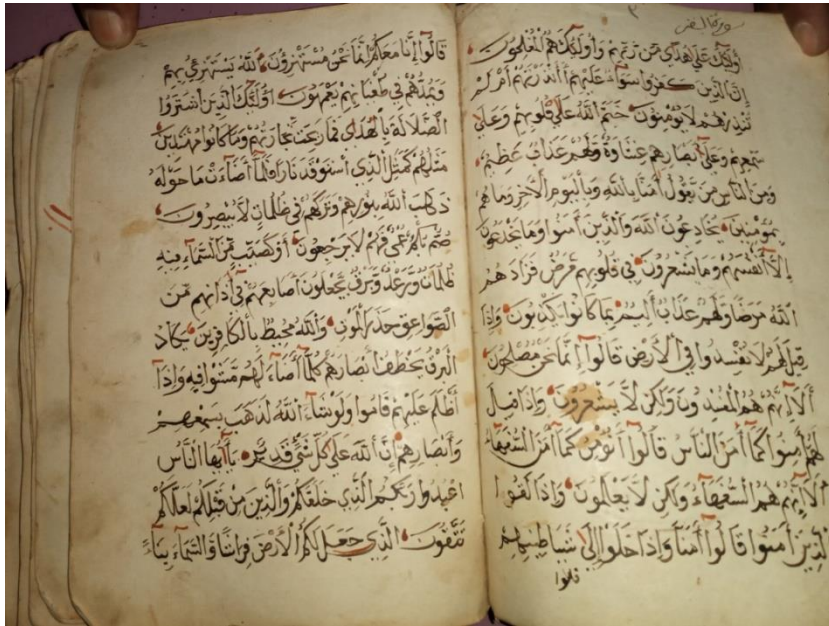 أُولَٰئِكَ عَلَىٰ هُدًى مِّن رَّبِّهِمْ وَأُولَٰئِكَ هُمُ الْمُفْلِحُونَ
إِنَّ الَّذِينَ كَفَرُوا سَوَاءٌ عَلَيْهِمْ أَأَنذَرْتَهُمْ أَمْ لَمْ
تُنذِرْهُمْ لَا يُؤْمِنُونَ خَتَمَ اللَّهُ عَلَىٰ قُلُوبِهِمْ وَعَلَىٰ
سَمْعِهِمْ وَعَلَىٰ أَبْصَارِهِمْ غِشَاوَةٌ وَلَهُمْ عَذَابٌ عَظِيمٌ
وَمِنَ النَّاسِ مَن يَقُولُ آمَنَّا بِاللَّهِ وَبِالْيَوْمِ الْآخِرِ وَمَا هُم
بِمُؤْمِنِينَ يُخَادِعُونَ اللَّهَ وَالَّذِينَ آمَنُوا وَمَا يَخْدَعُونَ
إِلَّا أَنفُسَهُمْ وَمَا يَشْعُرُونَ فِي قُلُوبِهِم مَّرَضٌ فَزَادَهُمُ
اللَّهُ مَرَضًا وَلَهُمْ عَذَابٌ أَلِيمٌ بِمَا كَانُوا يَكْذِبُونَ وَإِذَا
قِيلَ لَهُمْ لَا تُفْسِدُوا فِي الْأَرْضِ قَالُوا إِنَّمَا نَحْنُ مُصْلِحُونَ
أَلَا إِنَّهُمْ هُمُ الْمُفْسِدُونَ وَلَٰكِن لَّا يَشْعُرُونَ وَإِذَا قِيلَ
لَهُمْ آمِنُوا كَمَا آمَنَ النَّاسُ قَالُوا أَنُؤْمِنُ كَمَا آمَنَ السُّفَهَاءُ
أَلَا إِنَّهُمْ هُمُ السُّفَهَاءُ وَلَٰكِن لَّا يَعْلَمُونَ وَإِذَا لَقُوا
الَّذِينَ آمَنُوا قَالُوا آمَنَّا وَإِذَا خَلَوْا إِلَىٰ شَيَاطِينِهِمْ
قالوا
قَالُوا إِنَّا مَعَكُمْ إِنَّمَا نَحْنُ مُسْتَهْزِئُونَ اللَّهُ يَسْتَهْزِئُ بِهِمْ
وَيَمُدُّهُمْ فِي طُغْيَانِهِمْ يَعْمَهُونَ أُولَٰئِكَ الَّذِينَ اشْتَرَوُا
الضَّلَالَةَ بِالْهُدَىٰ فَمَا رَبِحَت تِّجَارَتُهُمْ وَمَا كَانُوا مُهْتَدِينَ
مَثَلُهُمْ كَمَثَلِ الَّذِي اسْتَوْقَدَ نَارًا فَلَمَّا أَضَاءَتْ مَا حَوْلَهُ
ذَهَبَ اللَّهُ بِنُورِهِمْ وَتَرَكَهُمْ فِي ظُلُمَاتٍ لَّا يُبْصِرُونَ
صُمٌّ بُكْمٌ عُمْيٌ فَهُمْ لَا يَرْجِعُونَ أَوْ كَصَيِّبٍ مِّنَ السَّمَاءِ فِيهِ
ظُلُمَاتٌ وَرَعْدٌ وَبَرْقٌ يَجْعَلُونَ أَصَابِعَهُمْ فِي آذَانِهِم مِّنَ
الصَّوَاعِقِ حَذَرَ الْمَوْتِ وَاللَّهُ مُحِيطٌ بِالْكَافِرِينَ يَكَادُ
الْبَرْقُ يَخْطَفُ أَبْصَارَهُمْ كُلَّمَا أَضَاءَ لَهُم مَّشَوْا فِيهِ وَإِذَا
أَظْلَمَ عَلَيْهِمْ قَامُوا وَلَوْ شَاءَ اللَّهُ لَذَهَبَ بِسَمْعِهِمْ
وَأَبْصَارِهِمْ إِنَّ اللَّهَ عَلَىٰ كُلِّ شَيْءٍ قَدِيرٌ يَا أَيُّهَا النَّاسُ
اعْبُدُوا رَبَّكُمُ الَّذِي خَلَقَكُمْ وَالَّذِينَ مِن قَبْلِكُمْ لَعَلَّكُمْ
تَتَّقُونَ الَّذِي جَعَلَ لَكُمُ الْأَرْضَ فِرَاشًا وَالسَّمَاءَ بِنَاءً